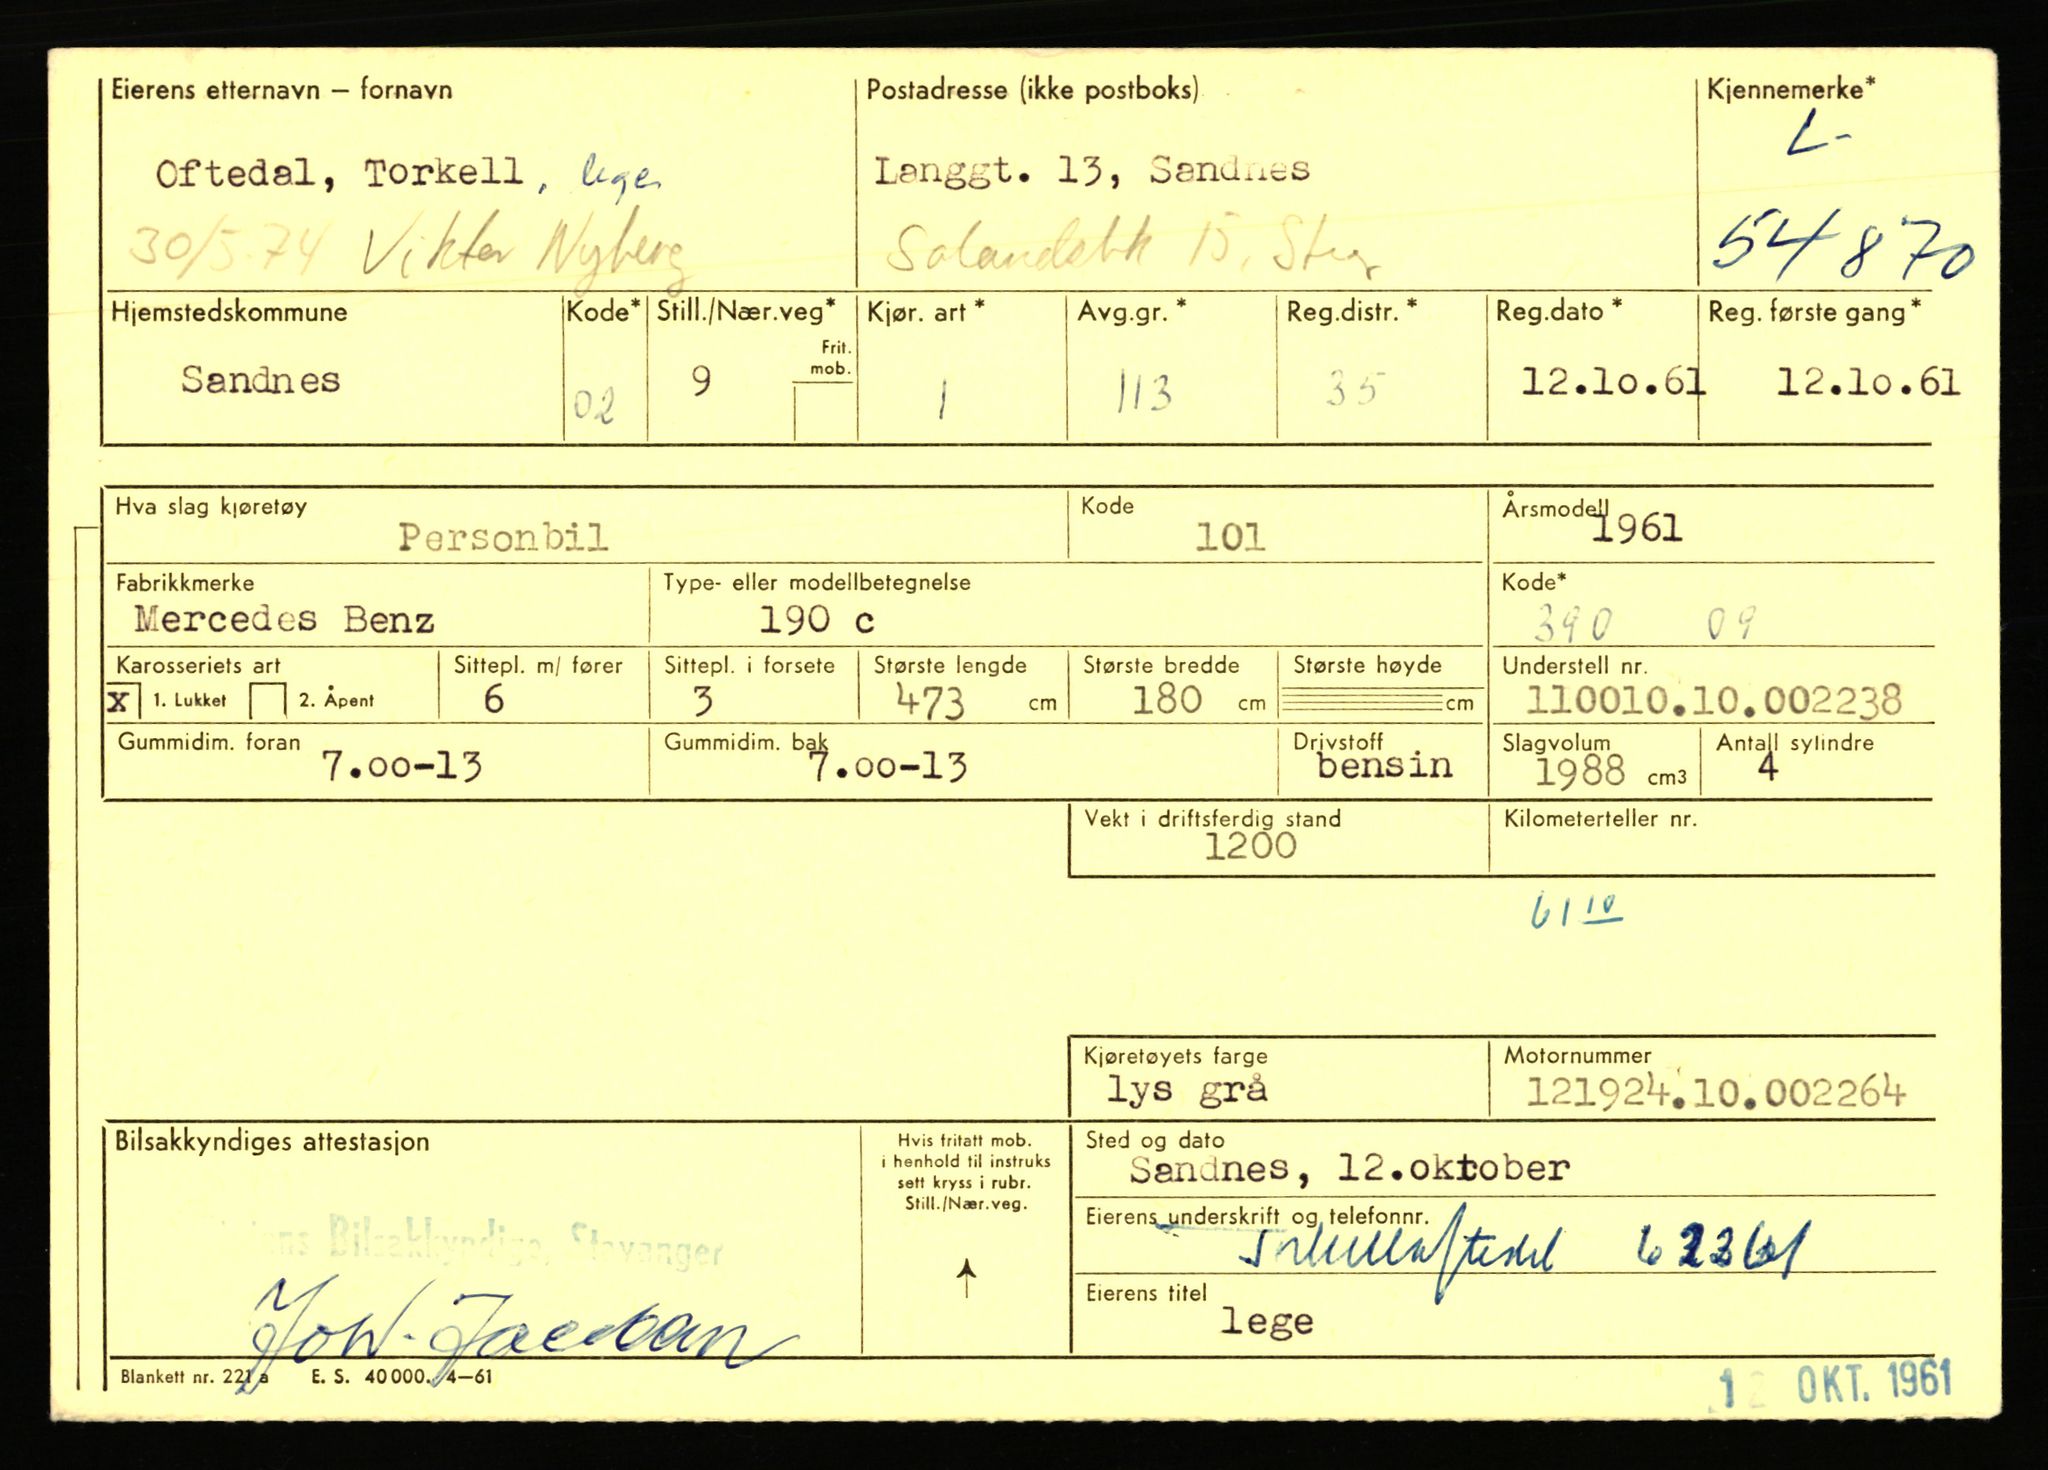 Eierens etternavn – fornavn
Postadresse (ikke postboks)
Kjennemerke*
L-
Oftedal, Torkell, lege
Langgt. 13, Sandnes
30/5-74 Viktor Nyberg
15, Stvgr
54870
Hjemstedskommune
Kode*
Still./Nær.veg*
Kjør. art*
Avg.gr.*
Reg.distr.*
Reg.dato*
Reg. første gang*
Frit. mob.
Sandnes
02
9
1
113
35
12.10.61
12.10.61
Hva slag kjøretøy
Personbil
Kode
101
Årsmodell
1961
Fabrikkmerke
Mercedes Benz
Type- eller modellbetegnelse
190 c
Kode*
390 09
Karosseriets art
X 1. Lukket 2. Åpent
Sittepl. m/ fører
6
Sittepl. i forsete
3
Største lengde
473 cm
Største bredde
180 cm
Største høyde
cm
Understell nr.
110010.10.002238
Gummidim. foran
7.00-13
Gummidim. bak
7.00-13
Drivstoff
bensin
Slagvolum
1988 cm3
Antall sylindre
4
Vekt i driftsferdig stand
1200
Kilometerteller nr.
61 10
Kjøretøyets farge
lys grå
Motornummer
121924.10.002264
Bilsakkyndiges attestasjon
Hvis fritatt mob.
i henhold til instruks
sett kryss i rubr.
Still./Nær.veg.
Sted og dato
Sandnes, 12.oktober
Bilsakkyndige, Stavanger
Eierens underskrift og telefonnr.
Torkell Oftedal
Eierens titel
lege
Blankett nr. 221 a E. S. 40000. 4–61
12 OKT. 1961